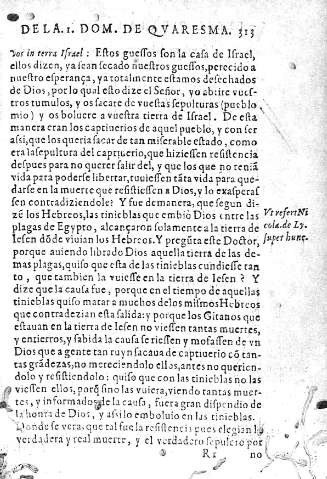 DE LA. I. DOM. DE QVARESMA. 313
vos in terra Israel: Estos guessos son la casa de Israel,
ellos dizen, ya sean secado nuestros guessos, perecido a
nuestro esperança, ya totalmente estamos desechados
de Dios, por lo qual esto dize el Señor, yo abrire vues-
tros tumulos, y os sacare de vuestas sepulturas (pueblo
mio) y os boluere a vuestra tierra de Israel. De esta
manera eran los captiuerios de aquel pueblo, y con ser
assi, que los queria sacar de tan miserable estado, como
era la sepultura del captiuerio, que hiziessen resistencia
despues para no querer salir del, y que los que no teniã
vida para poderse libertar, tuuiessen tãta vida para que-
darse en la muerte que resistiessen a Dios, y lo exasperas
sen contradiziendole? Y fue demanera, que segun di-
zẽ los Hebreos, las tinieblas que embiò Dios entre las
plagas de Egypto, alcançaron solamente a la tierra de
Iesen dõde viuian los Hebreos. Y pregũta este Doctor,
porque auiendo librado Dios aquella tierra de las de-
mas plagas, quiso que esta de las tinieblas cundiesse tan
to, que tambien la vuiesse en la tierra de Iesen? Y
dize que la causa fue, porque en el tiempo de aquellas
tinieblas quiso matar a muchos de los mismos Hebreos
que contradezian esta salida: y porque los Gitanos que
estauan en la tierra de Iesen no viessen tantas muertes,
y entierros, y sabida la causa se riessen y mofassen de vn
Dios que a gente tan ruyn sacaua de captiuerio cõ tan-
tas grãdezas, no mereciendolo ellos, antes no querien-
dolo y resistiendolo: quiso que con las tinieblas no las
viessen ellos, porq̃ sino las vuiera, viendo tantas muer-
tes, y informados de la causa, fuera gran dispendio de
la honra de Dios, y assi lo emboluio en las tinieblas.
Donde se vera: que tal fue la resistencia pues elegian la
verdadera y real muerte, y el verdadero sepulcro por
Vt refert Ni
cola. de Ly.
super hunc.
R r no